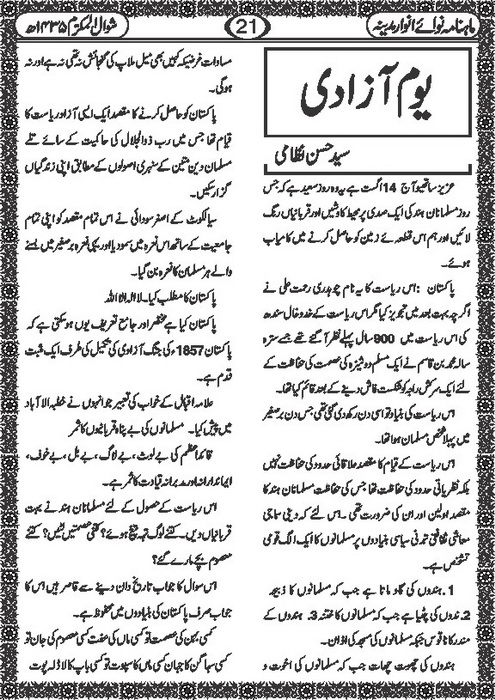 ماہنامہ نوائے انوار مدینہ
21
شوال المکرم ۱۴۳۵ھ
یوم آزادی
سید حسن نظامی
عزیز ساتھیو آج 14 اگست ہے یہ وہ روز سعید ہے کہ جس
روز مسلمانان ہند کی ایک صدی پر محیط کاوشیں اور قربانیاں رنگ
لائیں اور ہم اس قطعہ زمین کو حاصل کرنے میں کامیاب
ہوئے۔
پاکستان :اس ریاست کا یہ نام چوہدری رحمت علی نے
اگرچہ بہت بعد میں تجویز کیا مگر اس ریاست کے خدوخال سندھ
کی اس ریاست میں 900 سال پہلے نظر آ گئے تھے جسے سترہ
سالہ محمد بن قاسم نے ایک مسلم دوشیزہ کی عصمت کی حفاظت کے
لئے ایک سرکش راجہ کو شکست فاش دینے کے بعد قائم کیا تھا۔
اس ریاست کی بنیاد تو اسی دن رکھ دی گئی تھی جس دن برصغیر
میں پہلا شخص مسلمان ہوا تھا۔
اس ریاست کے قیام کا مقصد علاقائی حدود کی حفاظت نہیں
بلکہ نظریاتی حدود کی حفاظت تھا جس کی حفاظت مسلمانان ہند کا
مقصد اولین اور ان کی ضرورت تھی ۔اس لئے کہ دینی سماجی
معاشی ثقافتی تمدنی سیاسی بنیادوں پر مسلمانوں کا ایک الگ قومی
تشخص ہے۔
1۔ہندوں کی گاو ماتا ہے جب کہ مسلمانوں کا ذبیحہ
2۔ہندوں کی چٹیا ہے جب کہ مسلمانوں کا ختنہ 3۔ ہندوں کے
مندر کا ناقوس جبکہ مسلمانوں کی مسجد کی اذان۔
ہندوں کی چھوت چھات جب کہ مسلمانوں کی اخوت و
مساوات غرضیکہ کہیں بھی میل ملاپ کی گنجائش نہ تھی نہ ہے اور نہ
ہوگی۔
پاکستان کو حاصل کرنے کا مقصد ایک ایسی آزاد ریاست کا
قیام تھا جس میں رب ذوالجلال کی حاکیت کے سائے تلے
مسلمان دین متین کے سنہری اصولوں کے مطابق اپنی زندگیاں
گزار سکیں۔
سیالکوٹ کے اصغر سودائی نے اس تمام مقصد کو اپنی تمام
جامعیت کے ساتھ اس نعرہ میں سمو دیا اور یہی نعرہ برصغیر میں بسنے
والے ہر مسلمان کا نعرہ بن گیا۔
پاکستان کا مطلب کیا۔لا الہ الا اللہ
پاکستان کیا ہے مختصر اور جامع تعریف یوں ہو سکتی ہے کہ
پاکستان 1857،کی جنگ آزادی کی تکمیل کی طرف ایک مثبت
قدم ہے۔
علامہ اقبال کے خواب کی تعبیر جو انہوں نے خطبہ الا آباد
میں پیش کیا۔ مسلمانوں کی بے پناہ قربانیوں کا ثمر
قائد اعظم کی بے لوث، بے لاگ، بے بدل ،بے خوف،
ایماندارانہ اور مدبرانہ قیادت کا ثمر ہے۔
اس ریاست کے حصول کے لئے مسلمانان ہند نے بہت
قربانیاں دیں۔ کتنے لوگ تہہ تیغ ہوئے؟ کتنی عصمتیں لٹیں؟ کتنے
معصوم بچے مارے گئے؟
اس سوال کا جواب تاریخ دان دینے سے قاصر ہیں اس کا
جواب صرف پاکستان کی بنیادوں میں محفوظ ہے۔
کسی بہن کی عصمت تو کسی ماں کی عفت کسی معصوم کی جان تو
کسی سہاگن کا جہان کسی ماں کا سپوت تو کسی باپ کا لاڈلہ پوت